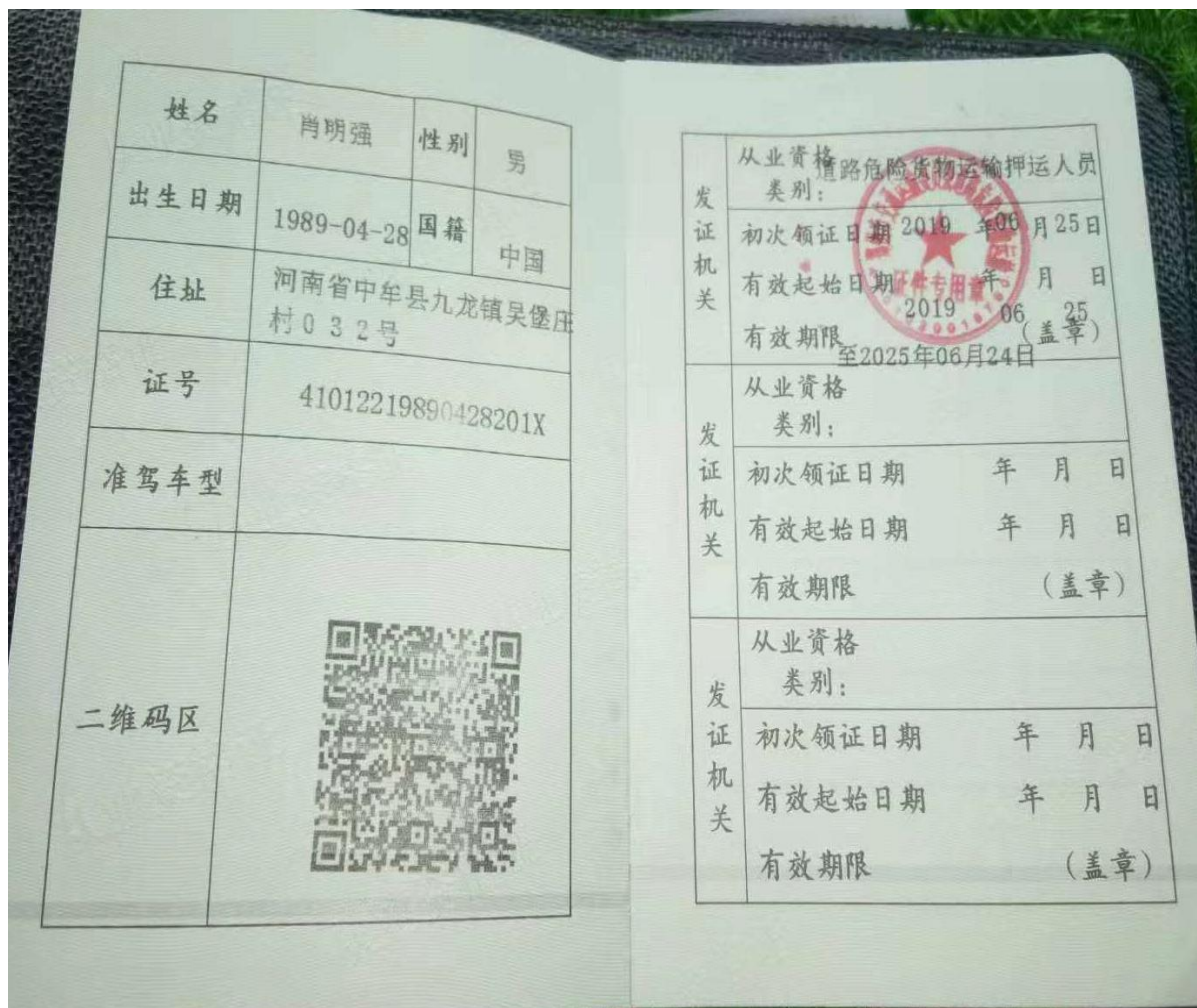 姓名 肖明强 性别 男
出生日期 1989-04-28 国籍 中国
住址 河南省中牟县九龙镇吴堡庄
村032号
证号 41012219890428201X
准驾车型
二维码区
发证机关
从业资格
类别:
道路危险货物运输押运人员
初次领证日期 2019 年06 月25日
有效起始日期 年 月 日
2019 06 25
有效期限 (盖章)
至2025年06月24日
证件专用章
发证机关
从业资格
类别:
初次领证日期 年 月 日
有效起始日期 年 月 日
有效期限 (盖章)
发证机关
从业资格
类别:
初次领证日期 年 月 日
有效起始日期 年 月 日
有效期限 (盖章)